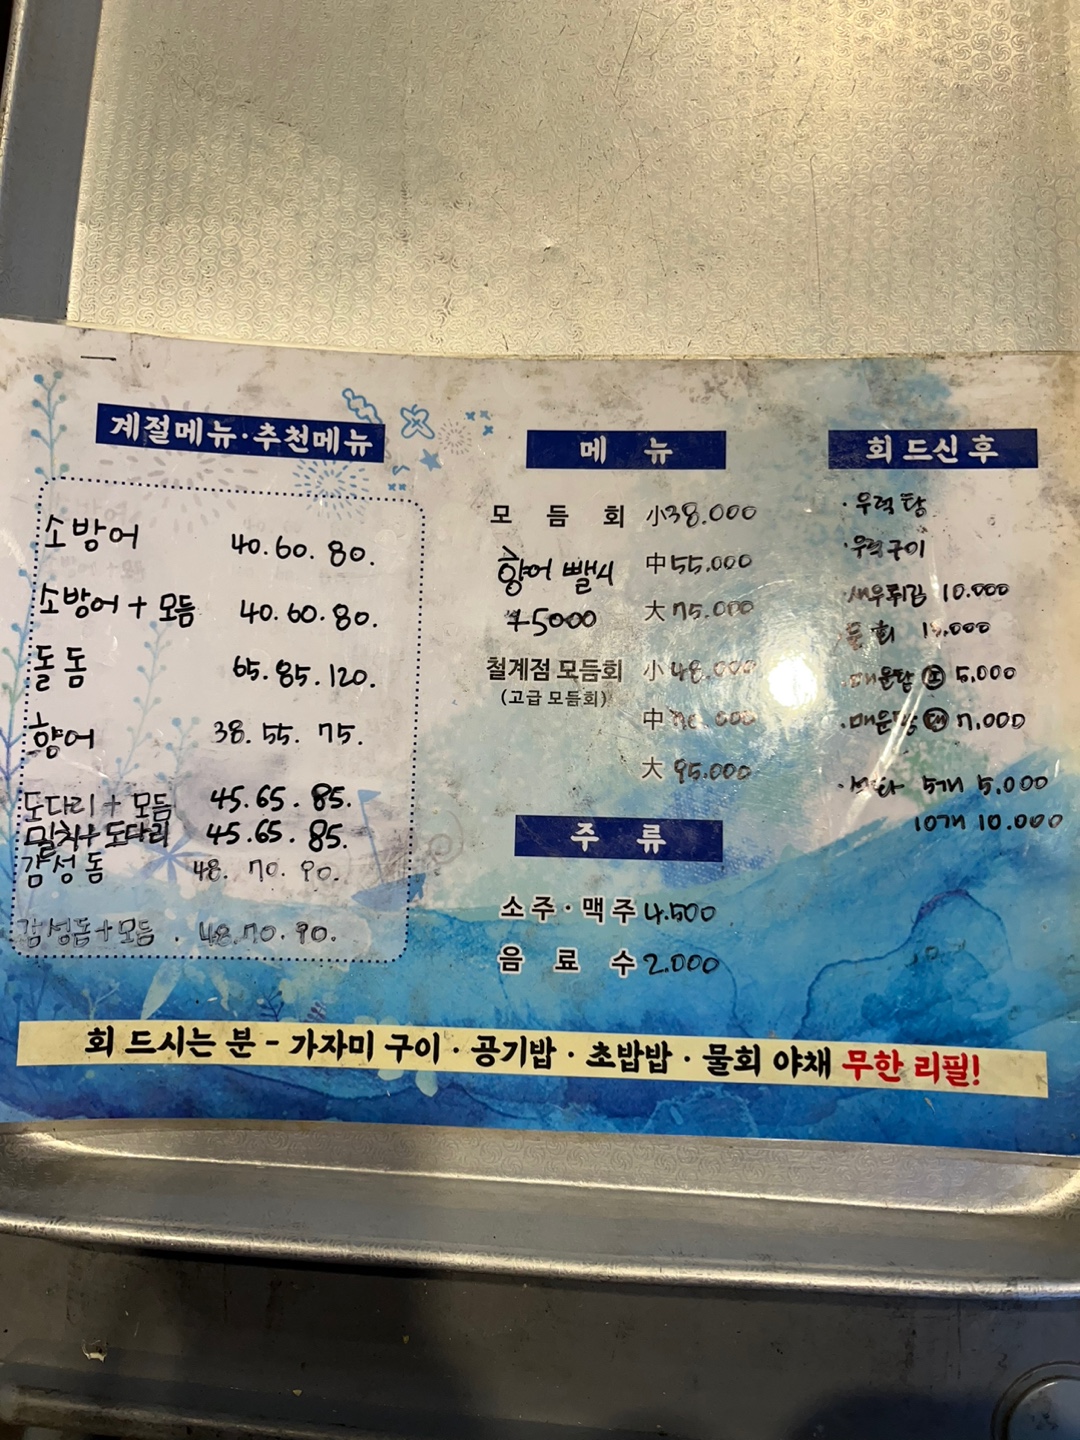 계절메뉴·추천메뉴
소방어 40.60.80.
소방어+모듬 40.60.80.
돌돔 65.85.120.
향어 38.55.75.
도다리+모듬 45.65.85.
밀치+도다리 45.65.85.
감성돔 48.70.90.
감성돔+모듬. 48.70.90.
메 뉴
모 듬 회 小38.000
향어 뺄시 中55.000
+5000 大75.000
철계점 모듬회 小48.000
(고급 모듬회)
中 000
大 95.000
주 류
소주·맥주 4.500
음 료 수 2.000
회 드신 후
·우럭탕
·우럭구이
·새우튀김 10.000
물회 000
·매운탕 小 5,000
·매운탕 大 7,000
5개 5.000
10개 10.000
회 드시는 분 - 가자미 구이 · 공기밥 · 초밥밥 · 물회 야채 무한 리필!